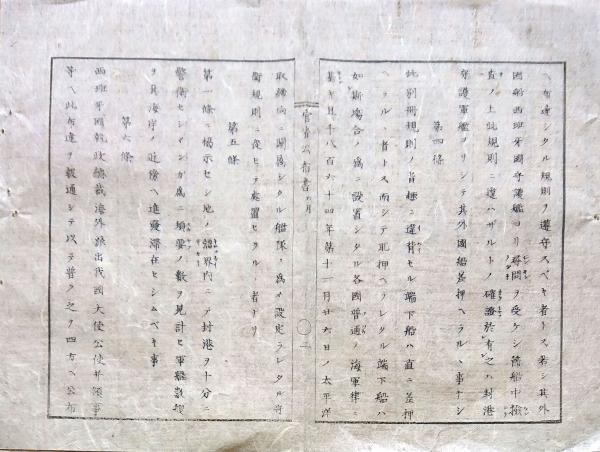 ヘ布達シタル規則ヲ遵守スベキ者トス若シ其外
國船西班牙國守護艦ヨリ尋問ヲ受ケシ船中檢
査ノ上此規則ニ違ハザルトノ確證於有之ハ封港
守護軍艦ヨリシテ其外國船差押ヘラルヽ事ナシ
第四條
此別冊規則ノ旨趣ニ違背セル端下船ハ直ニ差押
ヘラルヽ者トス而シテ取押ヘラレタル端下船ハ
如斯場合ノ爲ニ設置シタル各國普通ノ海軍律ニ
基キ千八百六十四年第十一月廿六日ノ太平洋
官省公布書
月
二
取締方ニ關係シタル艦隊ノ爲メ設定ラレタル
規則ニ從ヒテ處置セラルヽ者トス
第五條
第一條ニ揭示セシ地ノ疆界內ニテ封港ヲ十分ニ
警衛セシメンガ爲ニ須要ノ數ヲ見計ヒ軍艦
ヲ其海岸ノ近傍ヘ進發滯在セシムベキ事
第六條
西班牙國執政總裁海外派出我國大使公使幷領事
等ヘ此布達ヲ報通シテ以テ普ク之ヲ四方ヘ公布